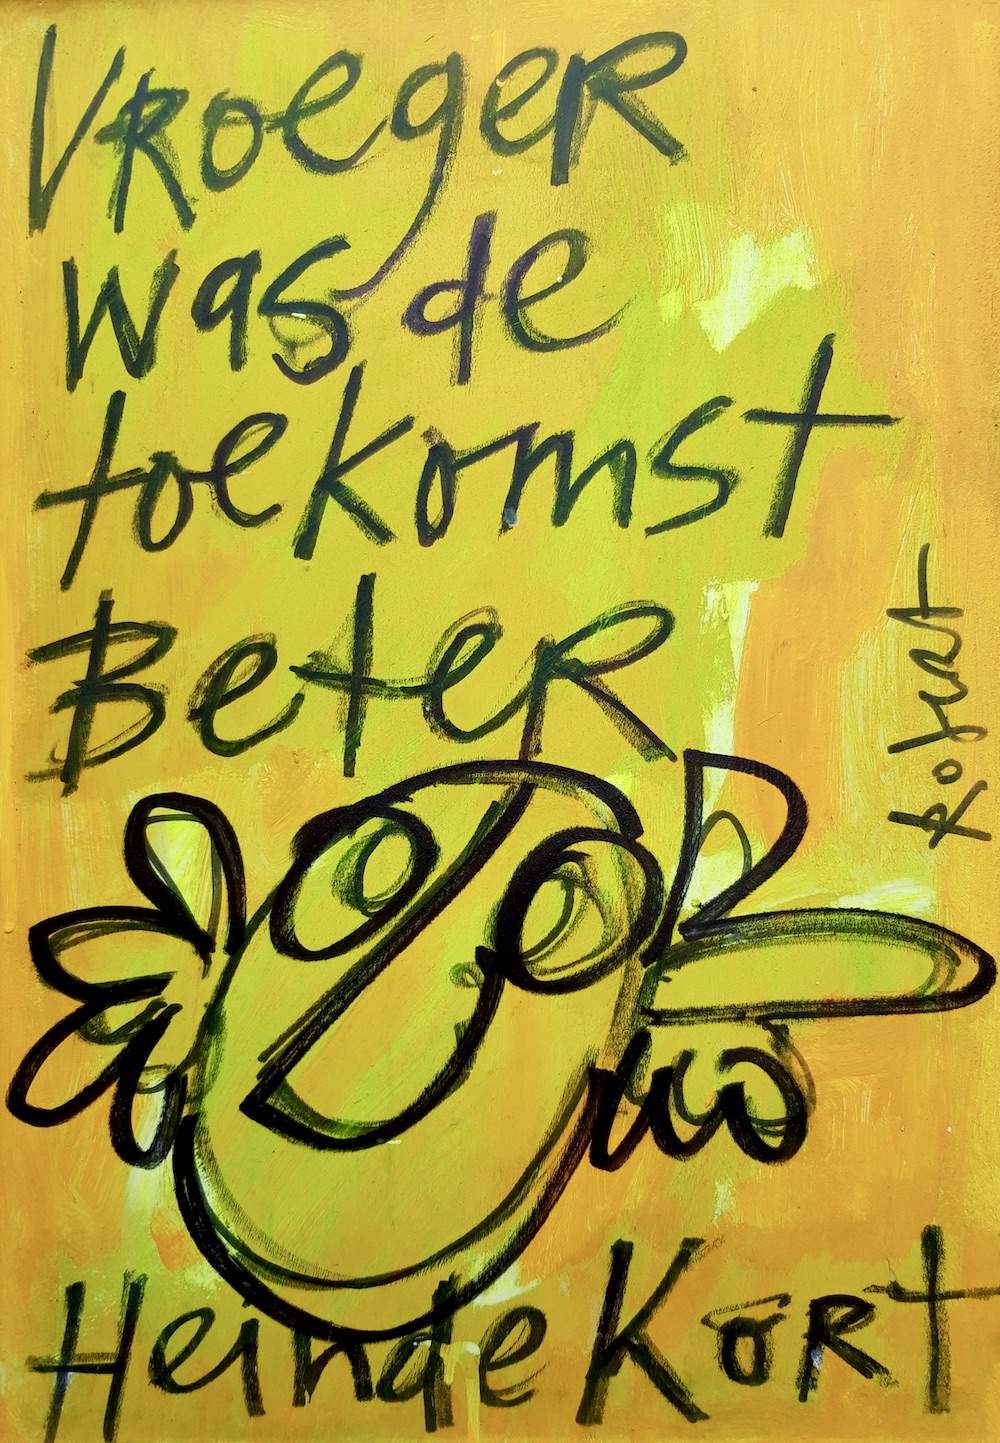 VRoegeR
was de
toekomst
BeteR
Robert
Hein de KoRt